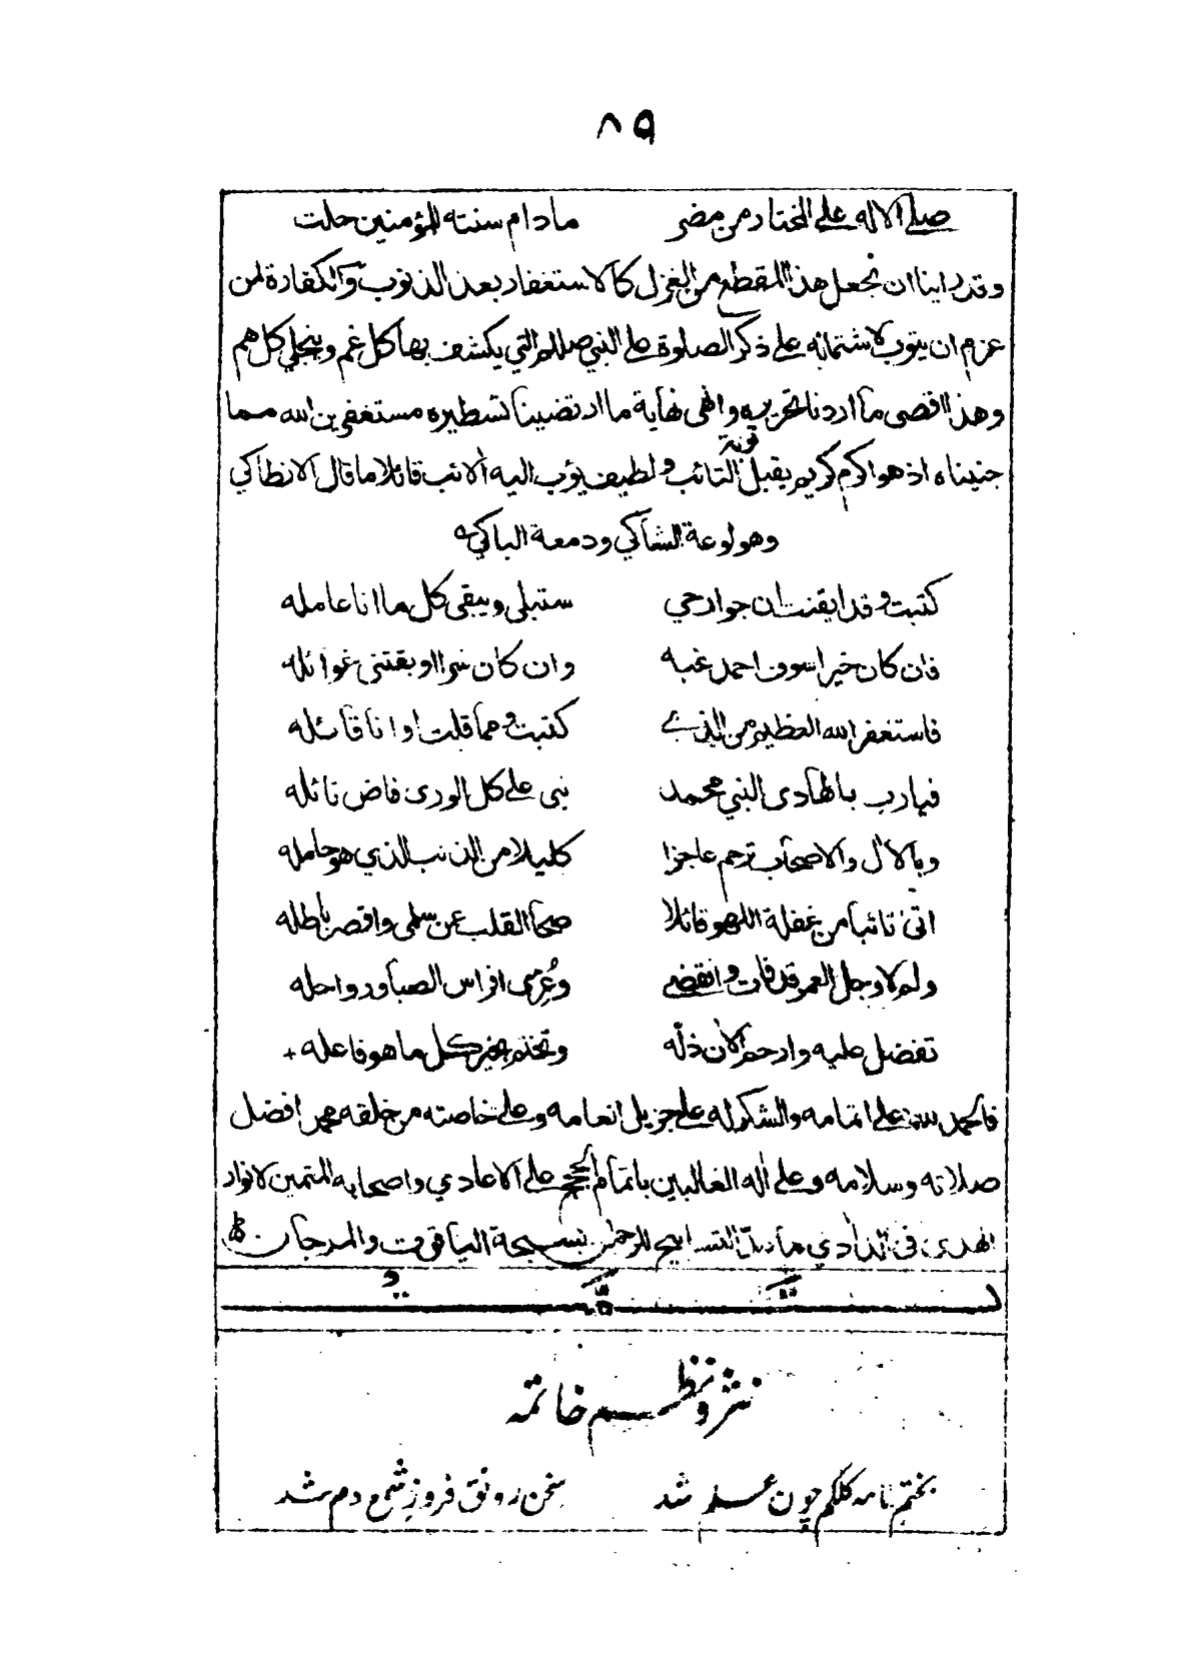 ٨٩
صلى الاله على المختار من مضر ما دام سنته للمؤمنين حلت
وقد راينا ان نجعل هذا المقطع من الغزل كالاستغفار بعد الذنوب والكفارة لمن
عزم ان يتوب لاشتماله على ذكر الصلوة على النبي صلعم التي يكشف بها كل غم وينجلي كل هم
وهذا اقصى ما اردنا تحريره وانهى نهاية ما ارتضينا تسطيره مستغفرين الله مما
جنيناه اذ هو اكرم كريم يقبل توبة التائب ولطيف يؤب اليه الائب قائلا ما قال الانطاكي
وهو لوعة الشاكي ودمعة الباكي
كتبت وقد ايقنت ان جوارحي ستبلى ويبقى كل ما انا عامله
فان كان خيرا سوف احمد غبه وان كان شرا اوبقتنى غوائله
فاستغفر الله العظيم من الذي كتبت ومما قلت او انا قائله
فيارب بالهادى النبي محمد نبى على كل الورى فاض نائله
وبالال والاصحاب ترحم عاجزا كليلا من الذنب الذي هو حامله
اتى تائبا من غفلة اللهو قائلا صحا القلب عن سلمى واقصر باطله
ولم لا وجل العمر قد فات وانقضى وعُرى افراس الصبا ورواحله
تفضل عليه وارحم الان ذلّه وتختم بخير كل ما هو فاعله
فالحمد لله على اتمامه والشكر له على جزيل انعامه وعلى خاصته من خلقه محمد افضل
صلاته وسلامه وعلى اله الغالبين باتمام الحجج على الاعادي واصحابه المتمين لانوار
الهدى فى النادي ما التسابيح للرحمن بسبحة الياقوت والمرجان
نثر ونظم خاتمه
بختم نامه كلكم چون علم شد سخن رونق فروز شمع دم شد